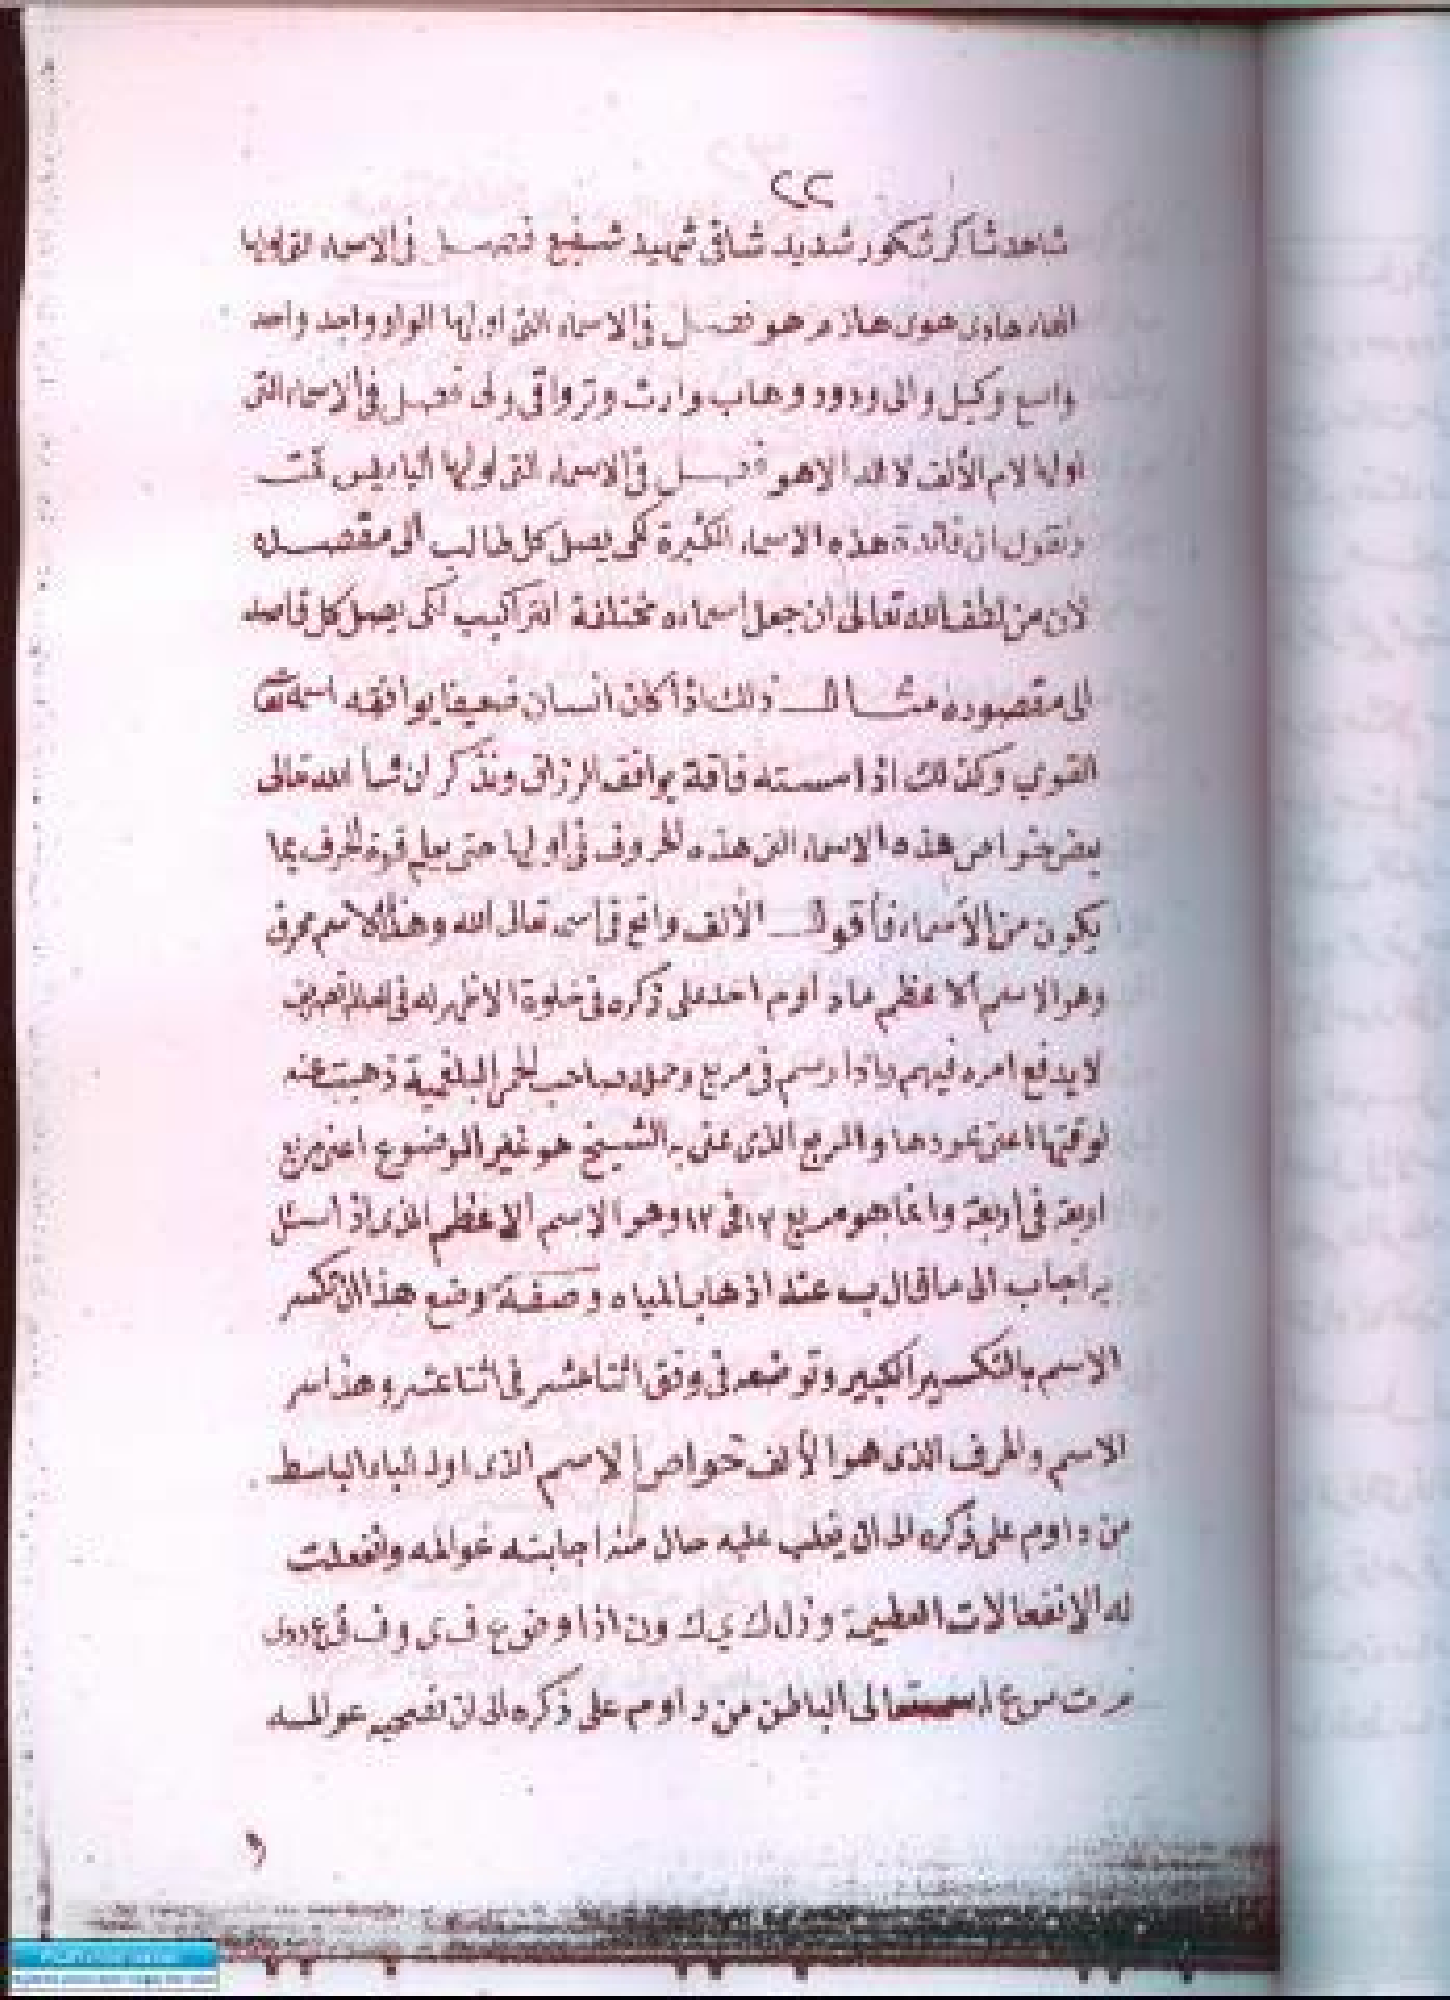 ٢٢
شاهد شاكر شكور شديد شافى شهيد شفيع فصل فى الاسماء التى اولها
الهاء هادى هوى هازم هو فصل فى الاسماء التى اولها الواو واجد واحد
واسع وكيل والى ودود وهاب وارث وتر واقى ولى فصل فى الاسماء التى
اولها لام الألف لا اله الا هو فصل فى الاسماء التى اولها الياء يس تمت
ونقول ان فائدة هذه الاسماء الكثيرة لكى يصل كل طالب الى مقصده
لان من لطف الله تعالى ان جعل اسماءه مختلفة التراكيب لكى يصل كل قاصد
الى مقصوده مثال ذلك اذا كان انسان ضعيفا يوافقه اسمه
القوي وكذلك اذا مسته فاقة يوافقه الرزاق ونذكر ان شاء الله تعالى
بعض خواص هذه الاسماء التى هذه الحروف فى أولها حتى يعلم قوة الحرف بما
يكون من الأسماء فأقول الألف واقع فى اسمه تعالى الله وهذا الاسم
وهو الاسم الاعظم ما داوم احد على ذكره فى خلوة الا ظهر له فى
لا يدفع امره فيهم واذا رسم فى مربع وحمله صاحب الحمى البلغمية ذهبت عنه
لوقتها اعنى برودها والمربع الذى عنى به الشيخ هو غير الموضوع اعنى مربع
اربعة فى اربعة وانما هو مربع ١٢ فى ١٢ وهو الاسم الاعظم الذى اذا سئل
به اجاب الى ما قال به عند اذهاب المياه وصفة وضع هذا
الاسم بالتكسير الكبير وتوضعه فى وفق اثنا عشر فى اثنا عشر وهذا سر
الاسم والحرف الذى هو الألف خواص الاسم الذى اوله الباء الباسط
من داوم على ذكره الى ان يغلب عليه حال منه اجابته عوالمه وانفعلت
له الانفعالات العظيمة وذ ل ك ي ك و ن اذا وض ع ف ى و ف ق
م ر ت س و ع اسمه تعالى الباطن من داوم على ذكره الى ان عوالمه
و